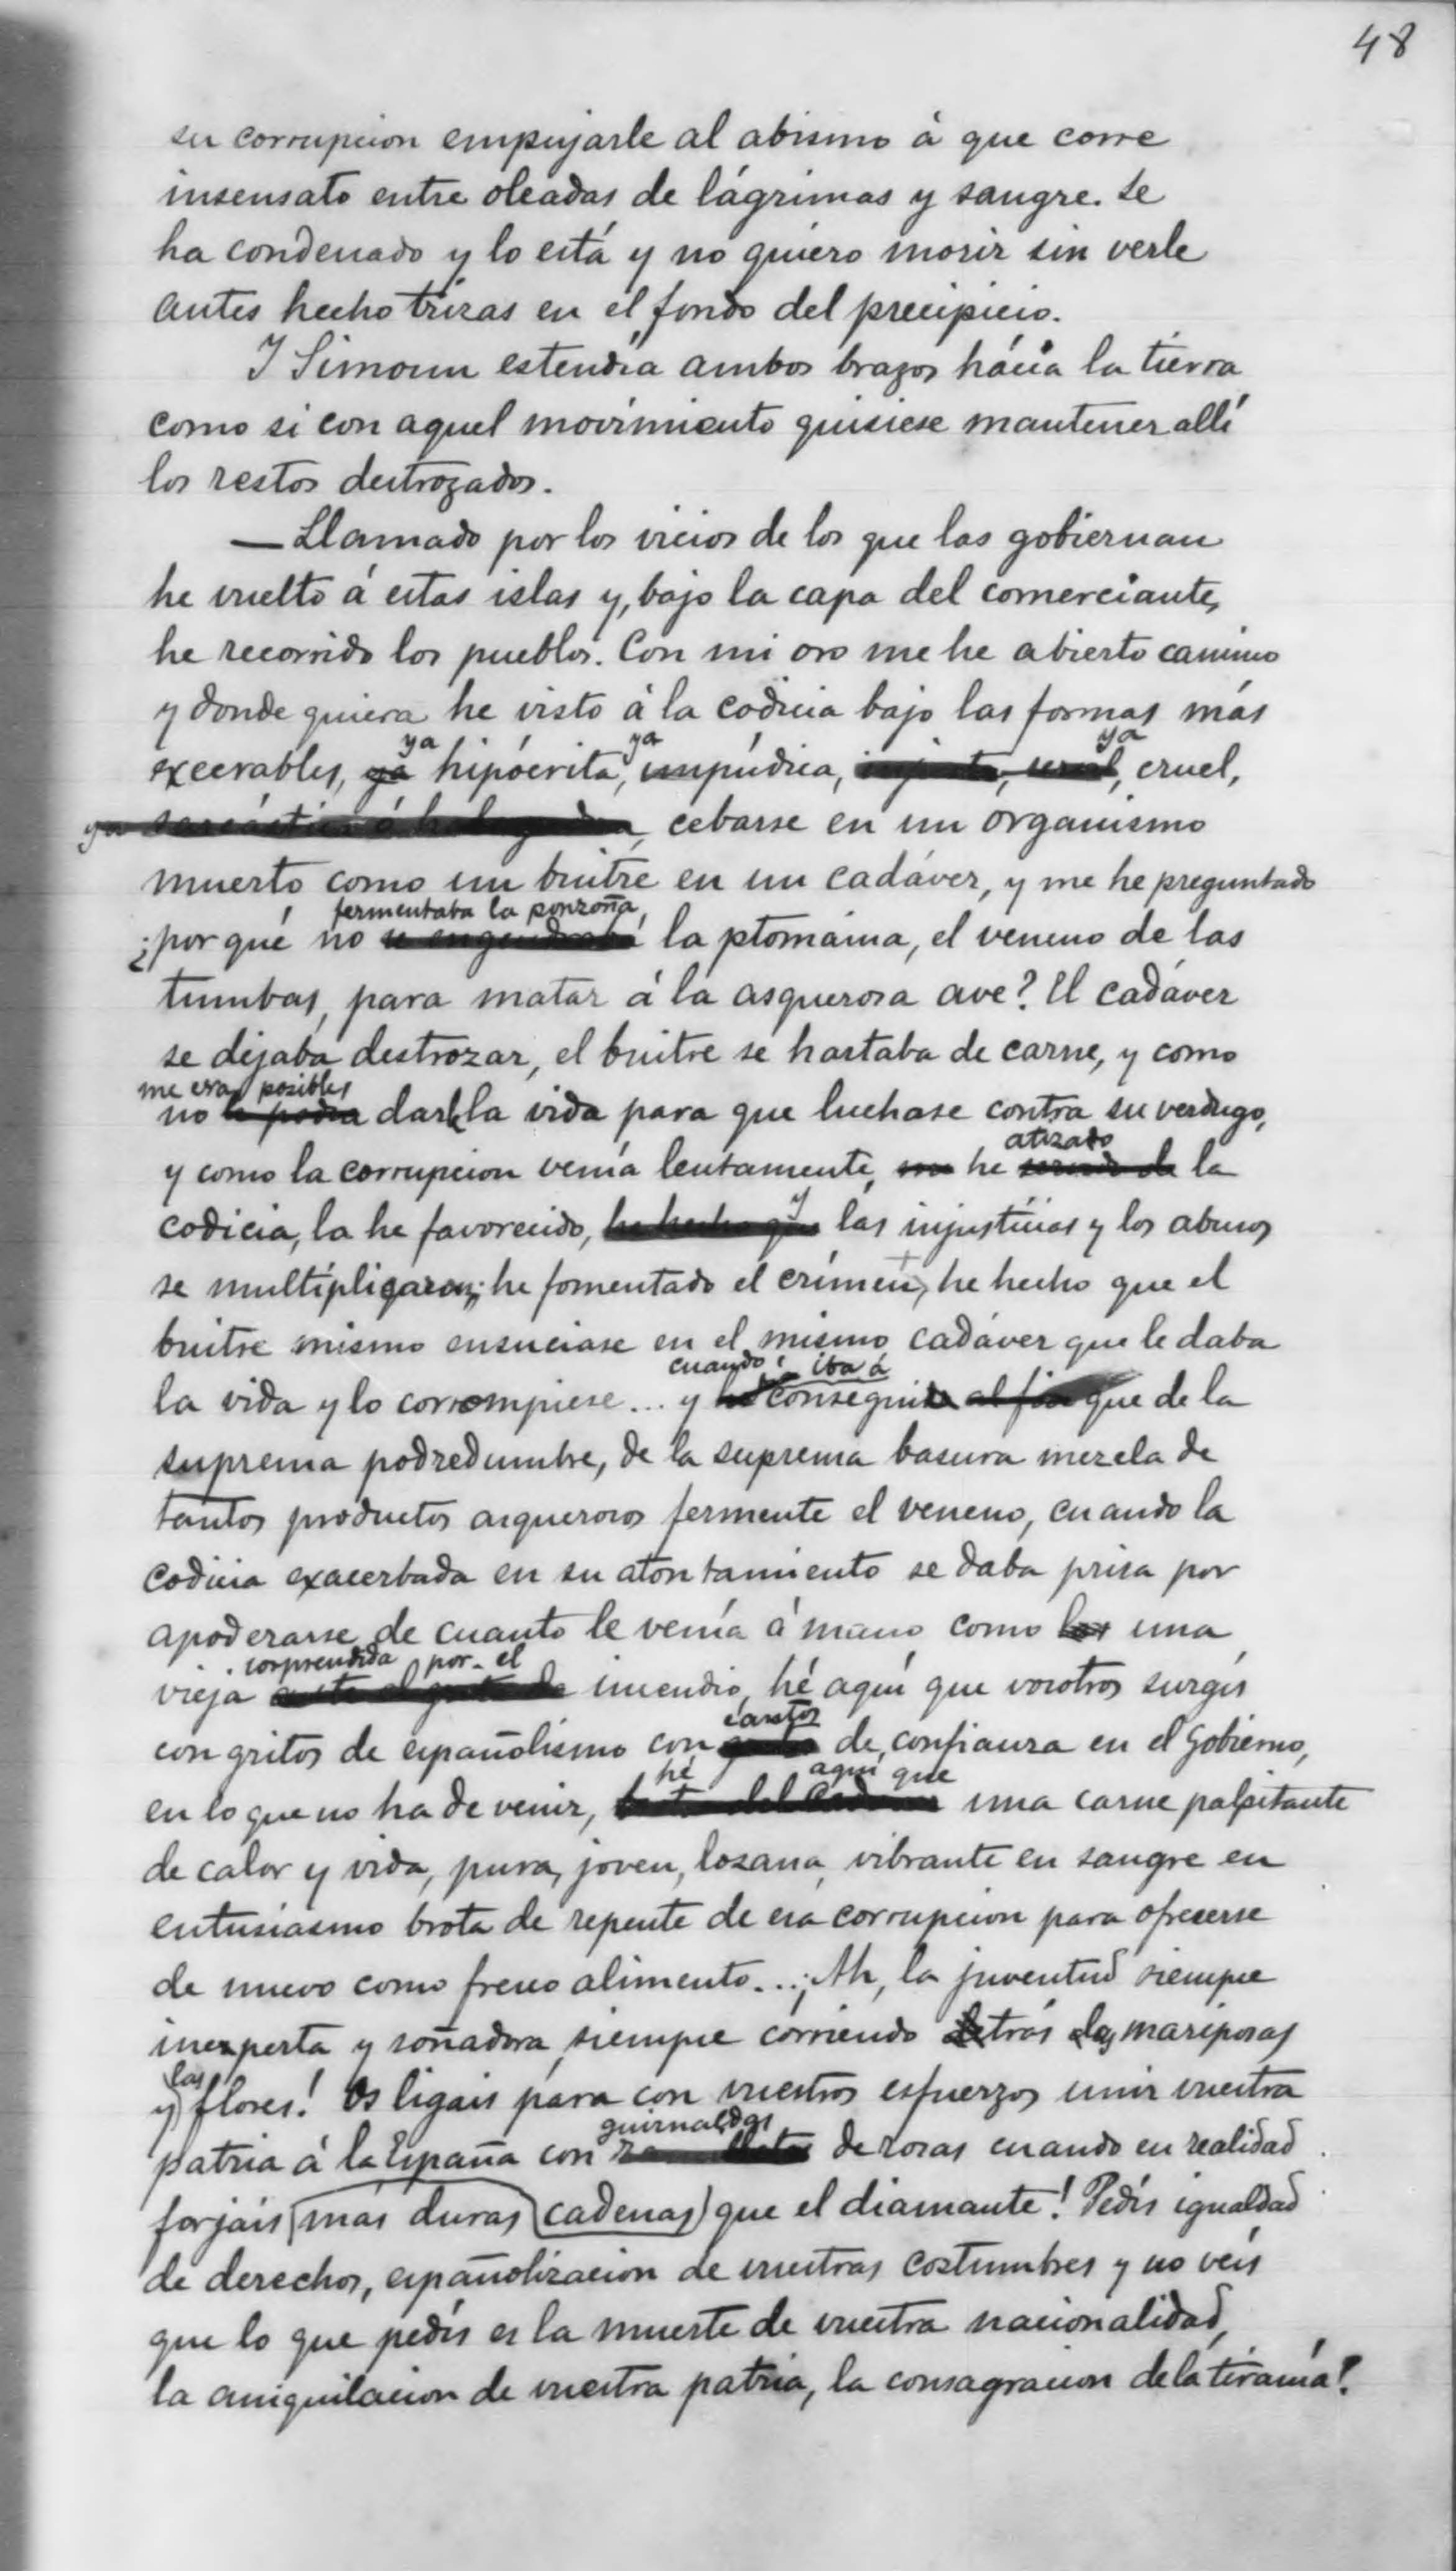 48
su corrupcion empujarle al abismo á que corre
insensato entre oleadas de lágrimas y sangre. Se
ha condenado y lo está y no quiero morir sin verle
antes hecho trizas en el fondo del precipicio.
Y Simoun estendia ambos brazos hácia la tierra
como si con aquel movimiento quisiese mantener allí
los restos destrozados.
— Llamado por los vicios de los que las gobiernan
he vuelto á estas islas y, bajo la capa del comerciante,
he recorrido los pueblos. Con mi oro me he abierto camino
y donde quiera he visto á la codicia bajo las formas más
ya ya ya
execrables, ya hipócrita, impúdica, cruel,
ya sarcástica ó halagadora, cebarse en un organismo
muerto como un buitre en un cadáver, y me he preguntado
fermentaba la ponzoña,
¿por qué no se engendraba la ptomaina, el veneno de las
tumbas, para matar á la asquerosa ave? El cadáver
se dejaba destrozar, el buitre se hartaba de carne, y como
me era posible
no le podia darle la vida para que luchase contra su verdugo,
atizado
y como la corrupcion venía lentamente, he la
y
codicia, la he favorecido, he hecho que las injusticias y los abusos
se multiplicaron; he fomentado el crímen, he hecho que el
buitre mismo ensuciase en el mismo cadáver que le daba
cuando iba á
la vida y lo corrompiese... y he conseguido al fin que de la
suprema podredumbre, de la suprema basura mezcla de
tantos productos asquerosos fermente el veneno, cuando la
codicia exacerbada en su atontamiento se daba prisa por
apoderarse de cuanto le venía á mano como las una
sorprendida por el
vieja ante el grito de incendio, hé aquí que vosotros surgis
cantos
con gritos de españolismo con de confianza en el Gobierno,
hé aquí que
en lo que no ha de venir, una carne palpitante
de calor y vida, pura, joven, lozana, vibrante en sangre en
entusiasmo brota de repente de esa corrupcion para ofrecerse
de nuevo como fresco alimento... ¡Ah, la juventud siempre
inexperta y soñadora, siempre corriendo detrás las mariposas
las
y flores! Os ligais para con vuestros esfuerzos unir vuestra
guirnaldas
patria á la España con de rosas cuando en realidad
forjais mas duras cadenas que el diamante! Pedís igualdad
de derechos, españolizacion de vuestras costumbres y no veis
que lo que pedís es la muerte de vuestra nacionalidad,
la aniquilacion de vuestra patria, la consagracion de la tiranía!